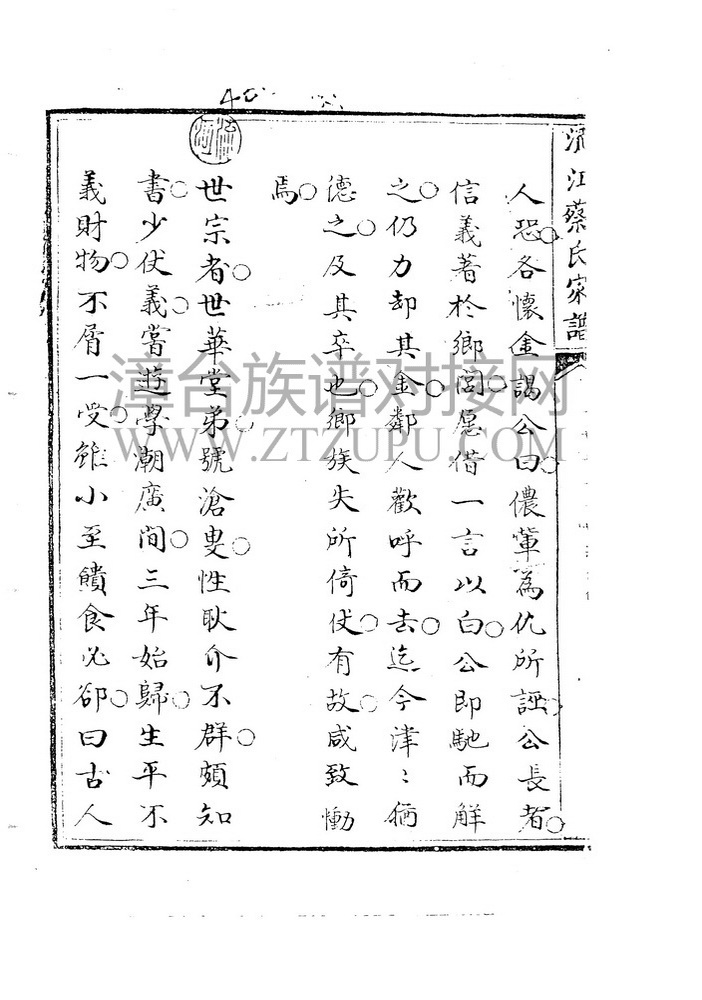 江蔡氏家譜
人恐○各懷金謁公曰○儂輩為仇所誣○公長者○
信義著於鄉閭○愿借一言以白○公即馳而解
之○仍力却其金○鄰人歡呼而去○迄今津〻猶
德之○及其卒也○鄉族失所倚仗○有故○咸致慟
焉○
世宗者○世華堂弟○號滄叟○性耿介不群○頗知
書○少仗義○嘗遊學潮廣間○三年始歸○生平不
義財物○不屑一受○雖小至饋食必郤○曰古人
漳台族谱对接网
WWW.ZTZUPU.COM